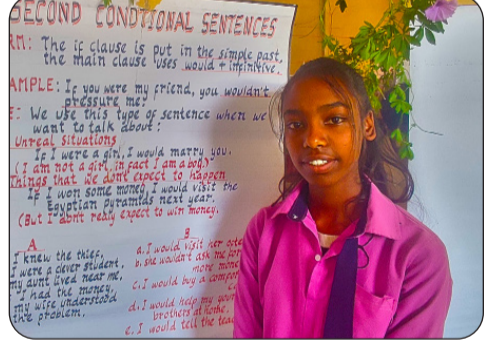 SECOND CONDITIONAL SENTENCES
RM: The if clause is put in the simple past,
the main clause uses would + infinitive.
AMPLE: If you were my friend, you wouldn't
pressure me?
E: We use this type of sentence when we
want to talk about:
Unreal situations
If I were a girl, I would marry you.
(I am not a girl, in fact I am a boy.)
Things that we don't expect to happen
If I won some money, I would visit the
Egyptian pyramids next year.
(But I don't realy expect to win money.
A
I knew the thief,
I were a clever student,
my aunt lived near me,
I had the money,
my wife understood
the problem.
B
a. I would visit her
b. she wouldn't ask me for
more money
c. I would buy a
d. I would help my
brothers at home.
e. I would tell the